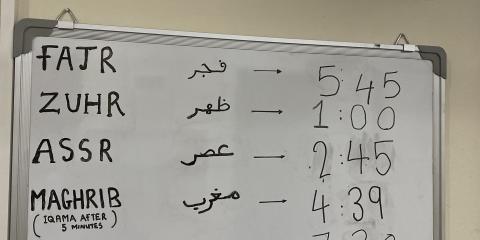 FAJR فجر → 5:45
ZUHR ظهر → 1:00
ASSR عصر → 2:45
MAGHRIB مغرب → 4:39
(IQAMA AFTER
5 MINUTES)